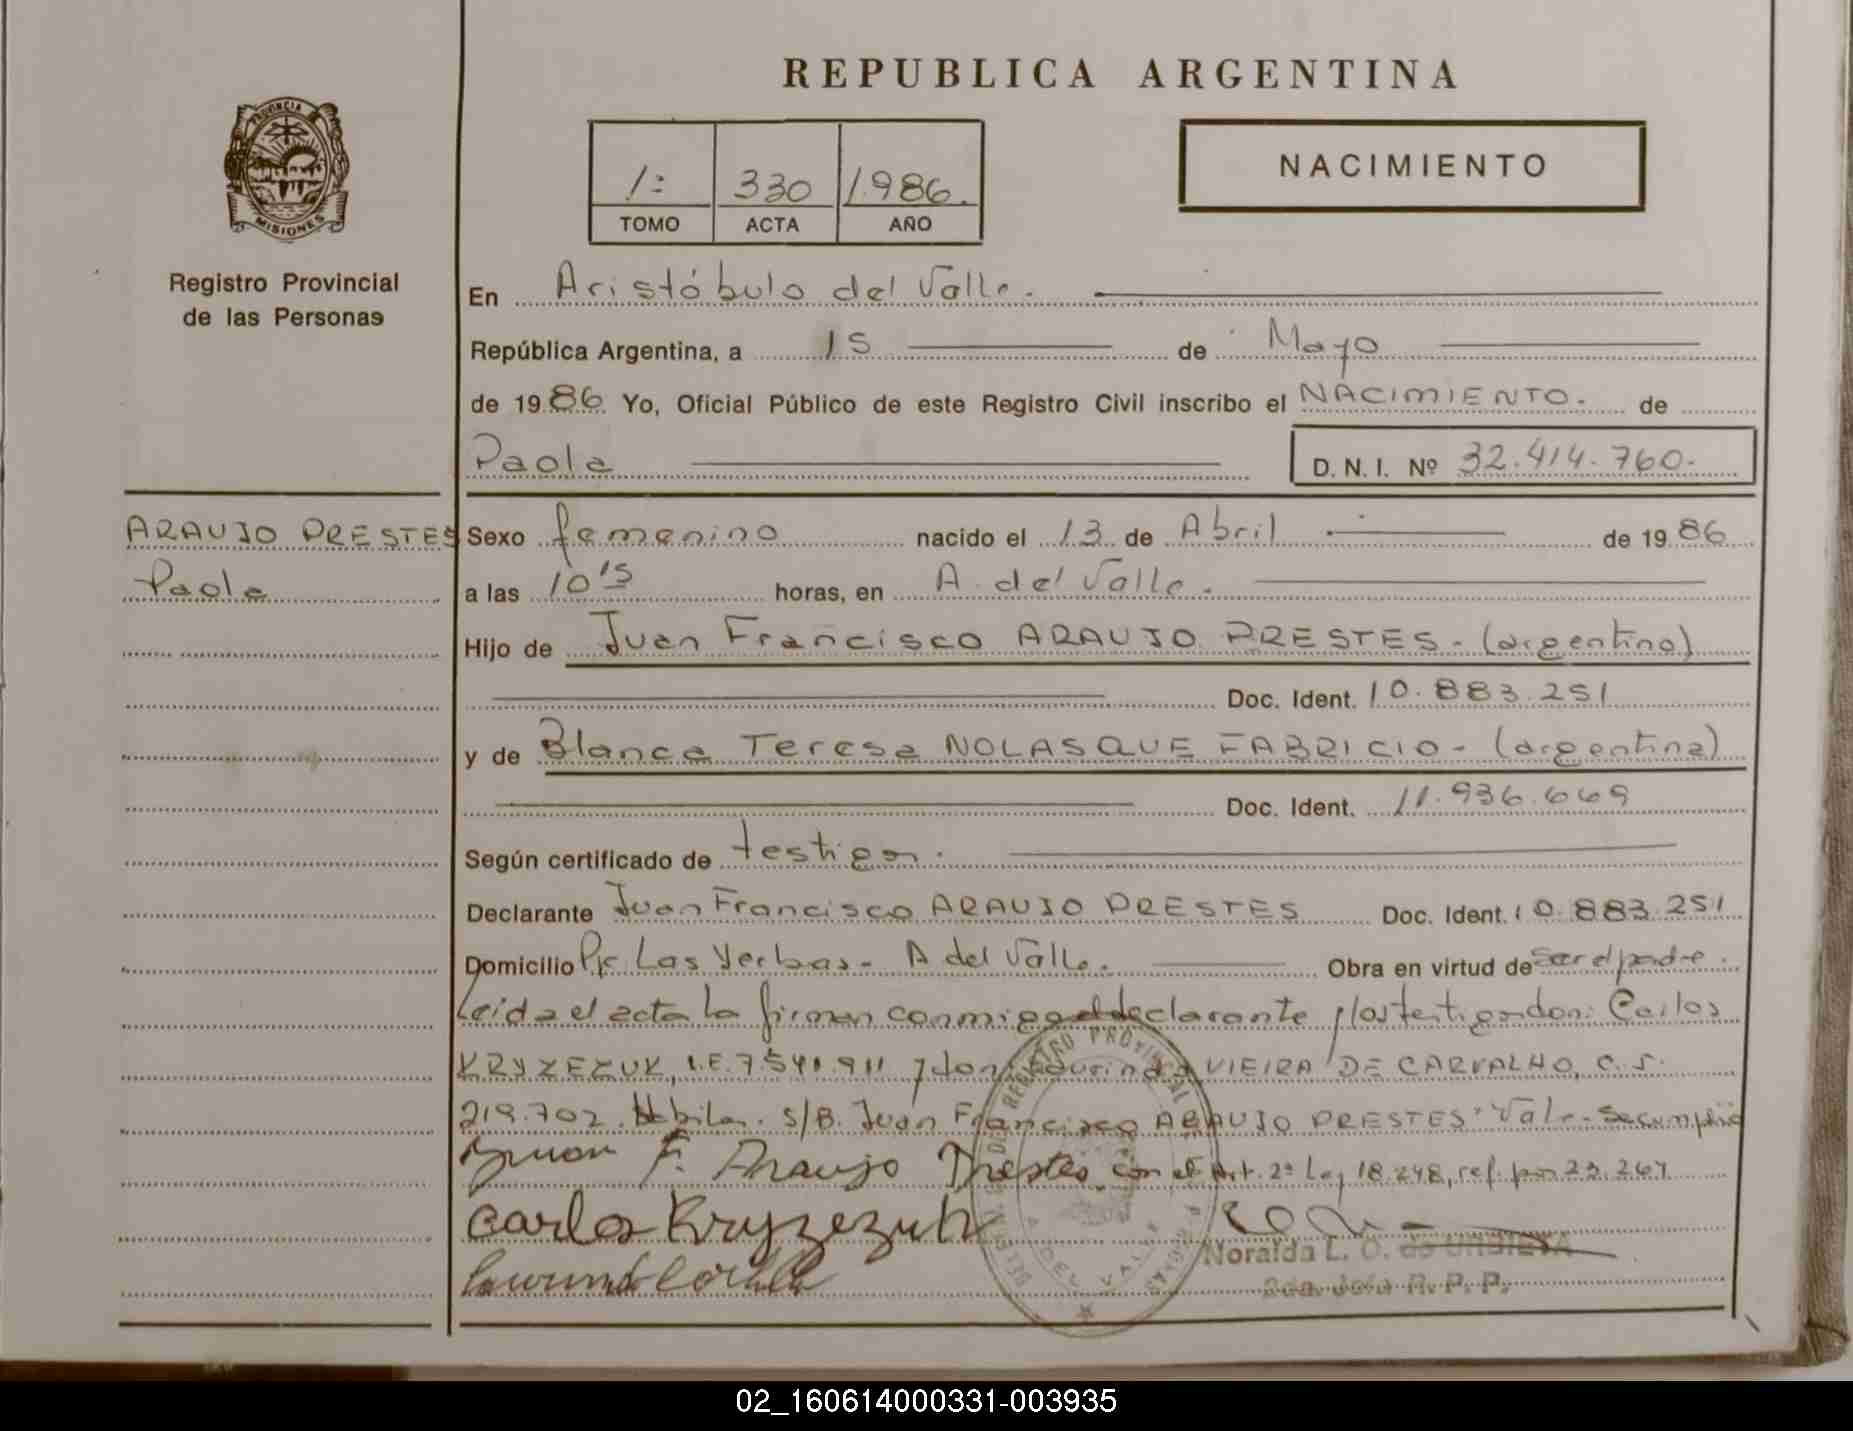 REPUBLICA ARGENTINA
PROVINCIA
MISIONES
Registro Provincial
de las Personas
1: 330 1.986.
TOMO ACTA AÑO
NACIMIENTO
En Aristóbulo del Valle.
República Argentina, a 15 de Mayo
de 1986. Yo, Oficial Público de este Registro Civil inscribo el NACIMIENTO. de
Paola D. N. I. Nº 32.414.760.
ARAUJO PRESTES
Paola
Sexo femenino nacido el 13 de Abril de 1986
a las 10 15 horas, en A. del Valle.
Hijo de Juan Francisco ARAUJO PRESTES - (argentino)
Doc. Ident. 10.883.251
y de Blanca Teresa NOLASQUE FABRICIO - (argentina)
Doc. Ident. 11.936.669
Según certificado de testigos.
Declarante Juan Francisco ARAUJO PRESTES Doc. Ident. 10.883.251
Domicilio Pje. Las Yerbas - A del Valle. Obra en virtud de ser el padre.
Leida el acta la firman conmigo el declarante y los testigos don: Carlos
KRYZEZUK, L.E. 7.541.911 y don Laurindo VIEIRA DE CARVALHO, C.I.
219.702. Hábiles. S/B. Juan Francisco ARAUJO PRESTES. Vale. Se cumplió
Juan F. Araujo Prestes con el Art. 2º Ley 18.248, ref. por 23.264
Carlos Kryzezuk
REGISTRO PROVINCIAL DE LAS PERSONAS
A. DEL VALLE
Noralda L. O. de URBIETA
Jefe R. P. P.
02_160614000331-003935